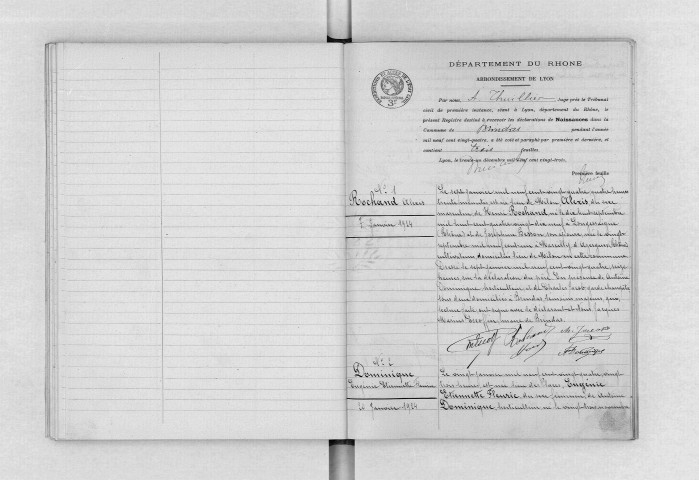 DÉPARTEMENT DU RHONE
ARRONDISSEMENT DE LYON
Par nous, Thuillier juge près le Tribunal
civil de première instance, séant à Lyon, département du Rhône, le
présent Registre destiné à recevoir les déclarations de Naissances dans la
Commune de Brindas pendant l'année
mil neuf cent vingt-quatre, a été coté et paraphé par première et dernière, et
contient trois feuilles.
Lyon, le trente-un décembre mil neuf cent vingt-trois.
Première feuille
N° 1
Rochand Alexis
7 Janvier 1924
Le sept janvier mil neuf cent vingt quatre quatre heures
trente minutes est né lieu de Milon Alexis du sexe
masculin de Rochand né le dix huit septembre
mil huit cent quatre vingt dix neuf à Longessaigne
(Rhône) et de Joséphine son épouse née le vingt
septembre mil neuf cent à
cultivateurs domiciliés lieu de Milon en cette commune
Dressé le sept janvier mil neuf cent vingt quatre, seize
heures, sur la déclaration du père. En présence de
Dominique horticulteur et de Charles garde champêtre
tous deux domiciliés à Brindas témoins majeurs, qui,
lecture faite ont signé avec le déclarant et Nous
maire de Brindas.
N° 2
Dominique
Eugénie Etiennette Fleurie
20 Janvier 1924
Le vingt janvier mil neuf cent vingt quatre vingt
trois heures, est née lieu de Eugénie
Etiennette Fleurie, du sexe féminin, de
Dominique, horticulteur né le vingt